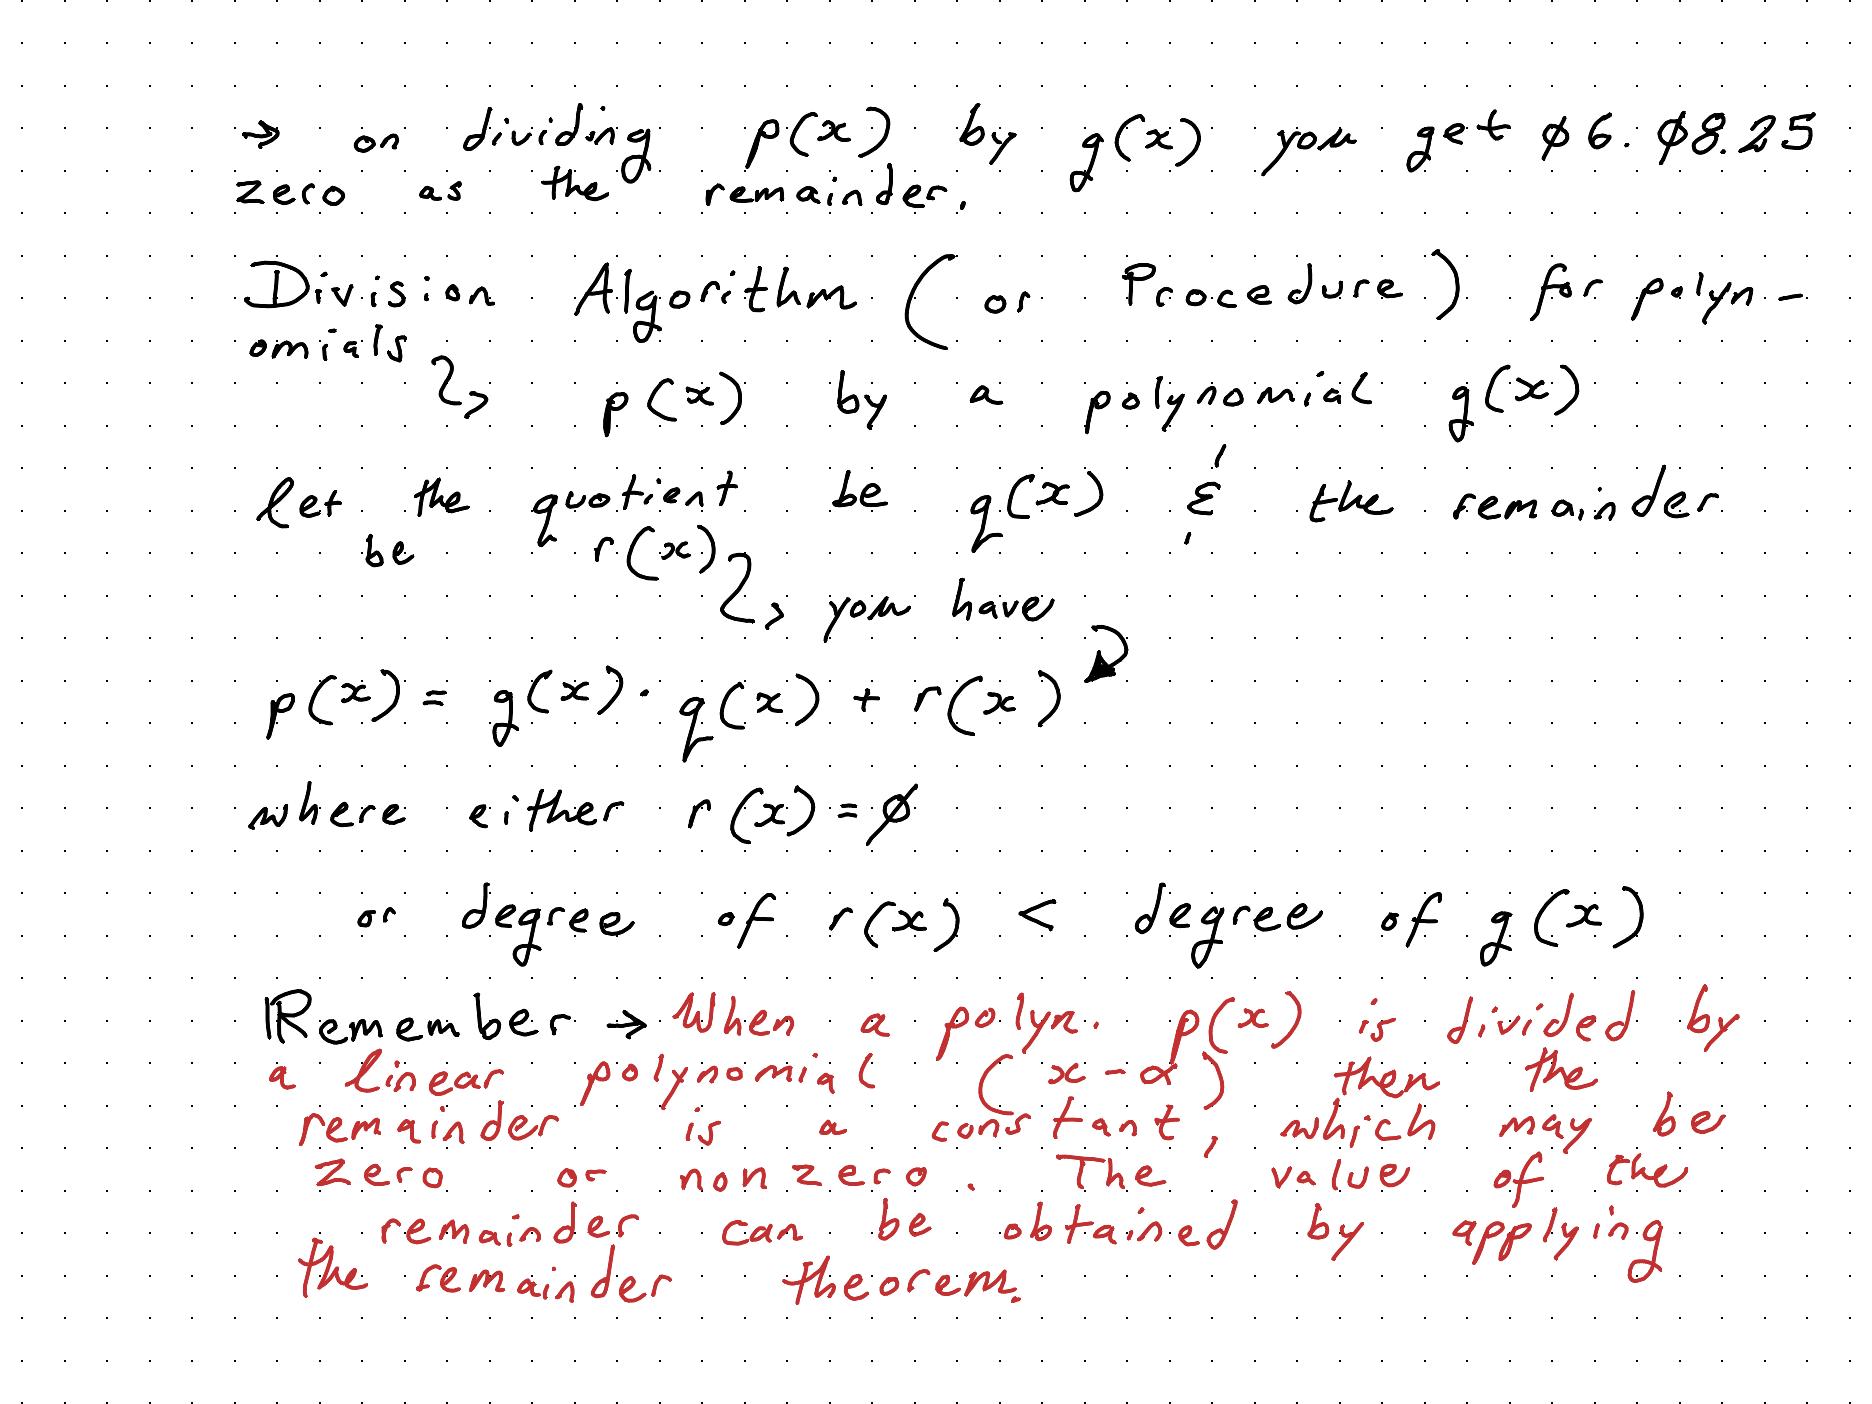 → on dividing p(x) by g(x) you get 06.08.25
zero as the remainder.
Division Algorithm (or Procedure) for polyn-
omials
p(x) by a polynomial g(x)
let the quotient be q(x) & the remainder
be r(x)
you have
p(x) = g(x) · q(x) + r(x)
where either r(x) = 0
or degree of r(x) < degree of g(x)
Remember → When a polyn. p(x) is divided by
a linear polynomial (x - α) then the
remainder is a constant, which may be
zero or nonzero. The value of the
remainder can be obtained by applying
the remainder theorem.